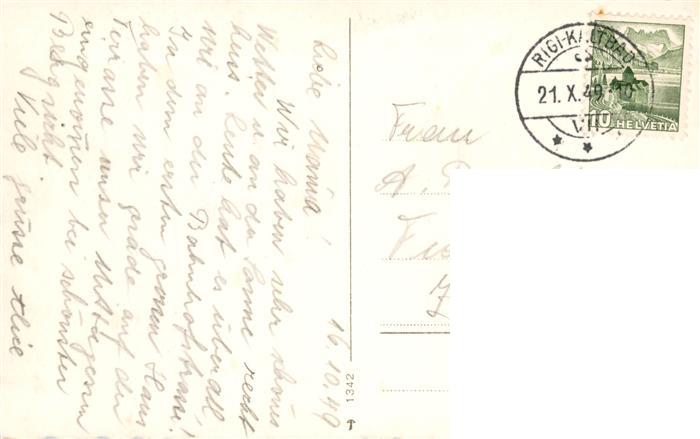 16.10.49
Liebe Mama!
Wir haben sehr schönes
Wetter u. an der Sonne recht
heiss. Leute hat es überall
wie an der Bahnhofstrasse!
In dem ersten grossen Haus
haben wir grade auf der
Terrasse unser Mittagessen
eingenommen bei schönster
Bergsicht.
Viele Grüsse Alice
1342
Frau
A.
RIGI-KALTBAD
21.X.49.
10 HELVETIA